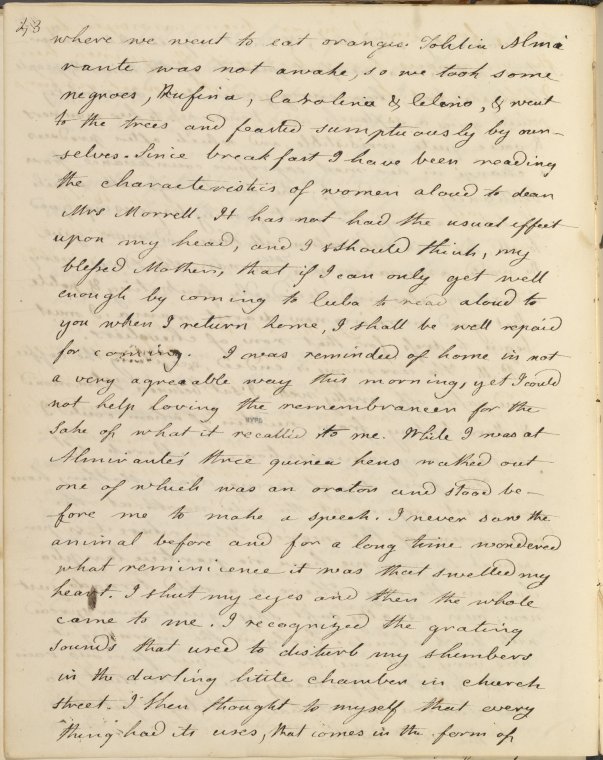 43
where we went to eat oranges. Tohlia Almi
rante was not awake, so we took some
negroes, Rufina, Carolina & Celerio, & went
to the trees and feasted sumptuously by our-
selves. Since breakfast I have been reading
the characteristics of women aloud to dear
Mrs Morrell. It has not had the usual effect
upon my head, and I should think, my
blessed Mother, that if I can only get well
enough by coming to Cuba to read aloud to
you when I return home, I shall be well repaid
for coming. I was reminded of home in not
a very agreeable way this morning, yet I could
not help loving the remembrancer for the
sake of what it recalled to me. While I was at
Almirante's three guinea hens walked out
one of which was an orator and stood be-
fore me to make a speech. I never saw the
animal before and for a long time wondered
what reminicence it was that swelled my
heart. I shut my eyes and then the whole
came to me. I recognized the grating
sounds that used to disturb my slumbers
in the darling little chamber in church
street. I then thought to myself that every
"thing" had its uses, that comes in the form of